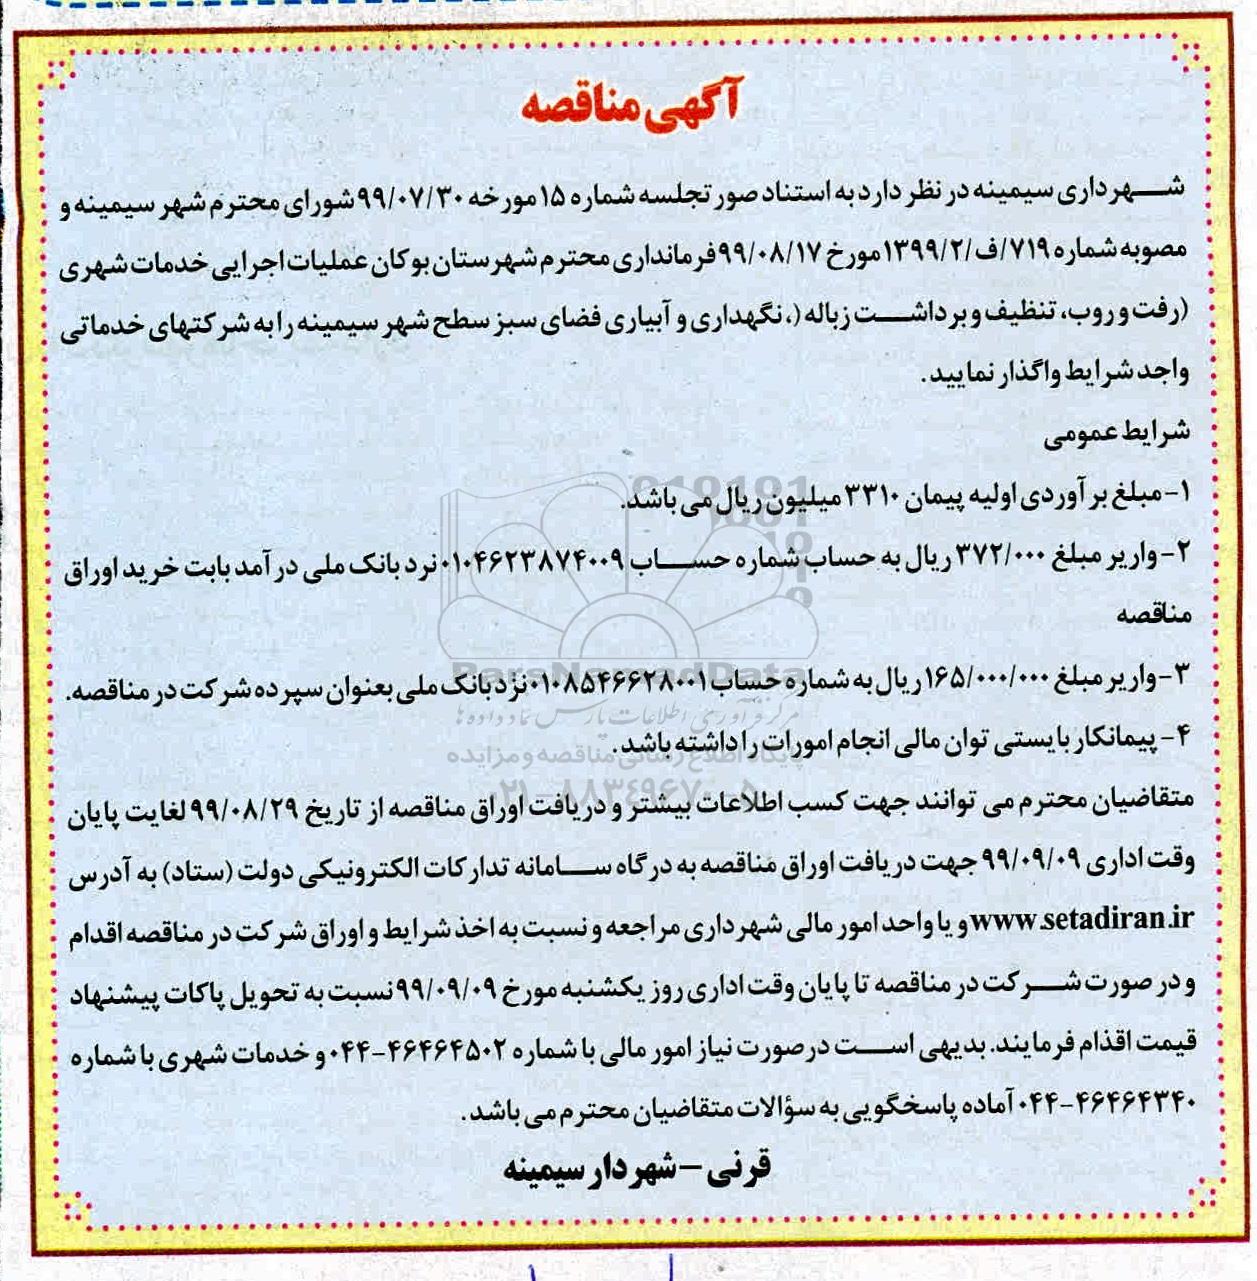 آگهی مناقصه
شهرداری سیمینه در نظر دارد به استناد صورتجلسه شماره ۱۵ مورخه ۹۹/۰۷/۳۰ شورای محترم شهر سیمینه و
مصوبه شماره ۷۱۹/ف/۱۳۹۹/۲ مورخ ۹۹/۰۸/۱۷ فرمانداری محترم شهرستان بوکان عملیات اجرایی خدمات شهری
(رفت و روب، تنظیف و برداشت زباله (، نگهداری و آبیاری فضای سبز سطح شهر سیمینه را به شرکتهای خدماتی
واجد شرایط واگذار نمایید.
شرایط عمومی
۱- مبلغ برآوردی اولیه پیمان ۳۳۱۰ میلیون ریال می باشد.
۲- واریر مبلغ ۳۷۲/۰۰۰ ریال به حساب شماره حساب ۰۱۰۴۶۲۳۸۷۴۰۰۹ نرد بانک ملی درآمد بابت خرید اوراق
مناقصه
۳- واریر مبلغ ۱۶۵/۰۰۰/۰۰۰ ریال به شماره حساب ۰۱۰۸۵۴۶۶۲۸۰۰۱ نزد بانک ملی بعنوان سپرده شرکت در مناقصه.
۴- پیمانکار بایستی توان مالی انجام امورات را داشته باشد.
متقاضیان محترم می توانند جهت کسب اطلاعات بیشتر و دریافت اوراق مناقصه از تاریخ ۹۹/۰۸/۲۹ لغایت پایان
وقت اداری ۹۹/۰۹/۰۹ جهت دریافت اوراق مناقصه به درگاه سامانه تدارکات الکترونیکی دولت (ستاد) به آدرس
www.setadiran.ir و یا واحد امور مالی شهرداری مراجعه و نسبت به اخذ شرایط و اوراق شرکت در مناقصه اقدام
و در صورت شرکت در مناقصه تا پایان وقت اداری روز یکشنبه مورخ ۹۹/۰۹/۰۹ نسبت به تحویل پاکات پیشنهاد
قیمت اقذام فرمایند. بدیهی است درصورت نیاز امور مالی با شماره ۴۶۴۶۴۵۰۲-۰۴۴ و خدمات شهری با شماره
۴۶۴۶۴۳۴۰-۰۴۴ آماده پاسخگویی به سؤالات متقاضیان محترم می باشد.
قرنی – شهردار سیمینه
ParsNamadData
مرکز فرآوری اطلاعات پارس نماد داده ها
پایگاه اطلاع رسانی مناقصه و مزایده
۰۲۱-۸۸۳۴۹۶۷۰-۵